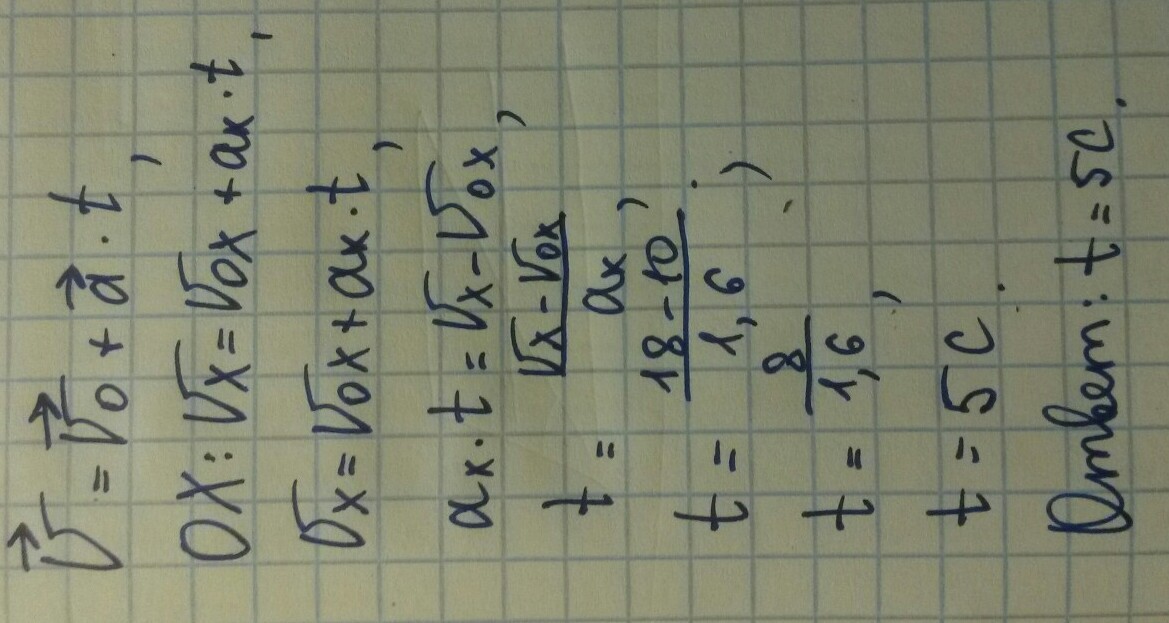 v⃗ = v⃗₀ + a⃗ · t,
OX: vx = v₀x + ax · t,
vx = v₀x + ax · t,
ax · t = vx - v₀x,
t = (vx - v₀x) / ax,
t = (18 - 10) / 1,6;
t = 8 / 1,6,
t = 5 с.
Ответ: t = 5с.